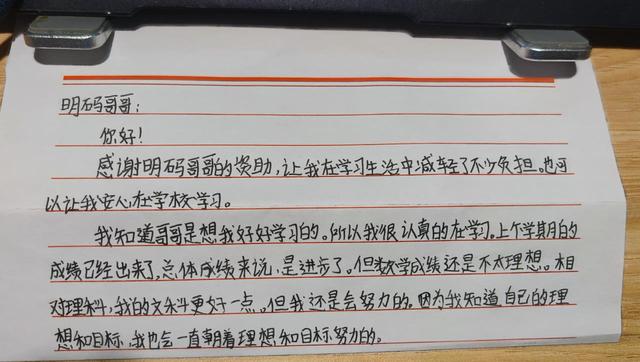 明码哥哥：
你好！
感谢明码哥哥的资助，让我在学习生活中减轻了不少负担。也可
以让我安心在学校学习。
我知道哥哥是想我好好学习的。所以我很认真的在学习。上个学期的
成绩已经出来了，总体成绩来说，是进步了。但数学成绩还是不太理想。相
对理科，我的文科更好一点。但我还是会努力的。因为我知道自己的理
想和目标，我也会一直朝着理想和目标努力的。